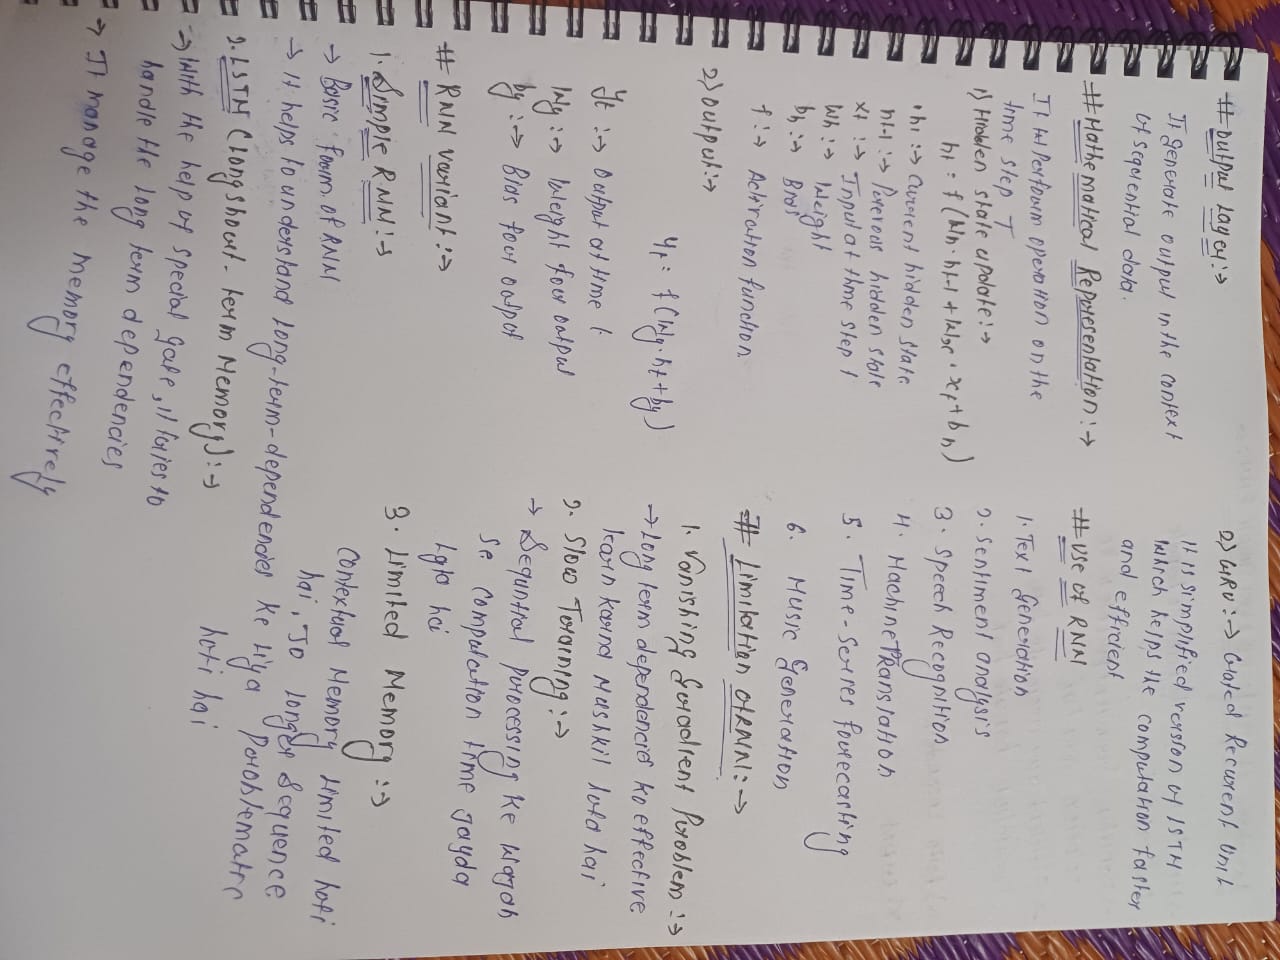 # Output Layer :->
It generate output in the context
of sequential data.
# Mathematical Representation :->
It will perform operation on the
time step T
1) Hidden state update :->
ht = f (Wh · ht-1 + Wx · xt + bh)
• ht :-> Current hidden state
ht-1 :-> Previous hidden state
xt :-> Input at time step t
Wh :-> Weight
bh :-> Bias
f :-> Activation function
2) Output :->
yt = f(Wy · ht + by)
yt :-> Output at time t
Wy :-> Weight for output
by :-> Bias for output
# RNN variant :->
1. Simple RNN :->
-> Basic form of RNN
-> It helps to understand long-term-dependencies
2. LSTM (Long short-term Memory) :->
-> With the help of special gate, it tries to
handle the long term dependencies
-> It manage the memory effectively
2) GRU :-> Gated Recurent Unit
It is simplified version of LSTM
Which helps the computation faster
and efficient
# Use of RNN
1. Text Generation
2. Sentiment analysis
3. Speech Recognition
4. Machine Translation
5. Time-Series forecasting
6. Music Generation
# Limitation of RNN :->
1. Vanishing Gradient Problem :->
-> Long term dependencies ko effective
learn karna Mushkil hota hai
2. Slow Training :->
-> Sequntial processing ke wajah
se computation time jayda
lgta hai
3. Limited Memory :->
Contextual Memory limited hoti
hai, Jo longer Sequence
ke liya problematic
hoti hai